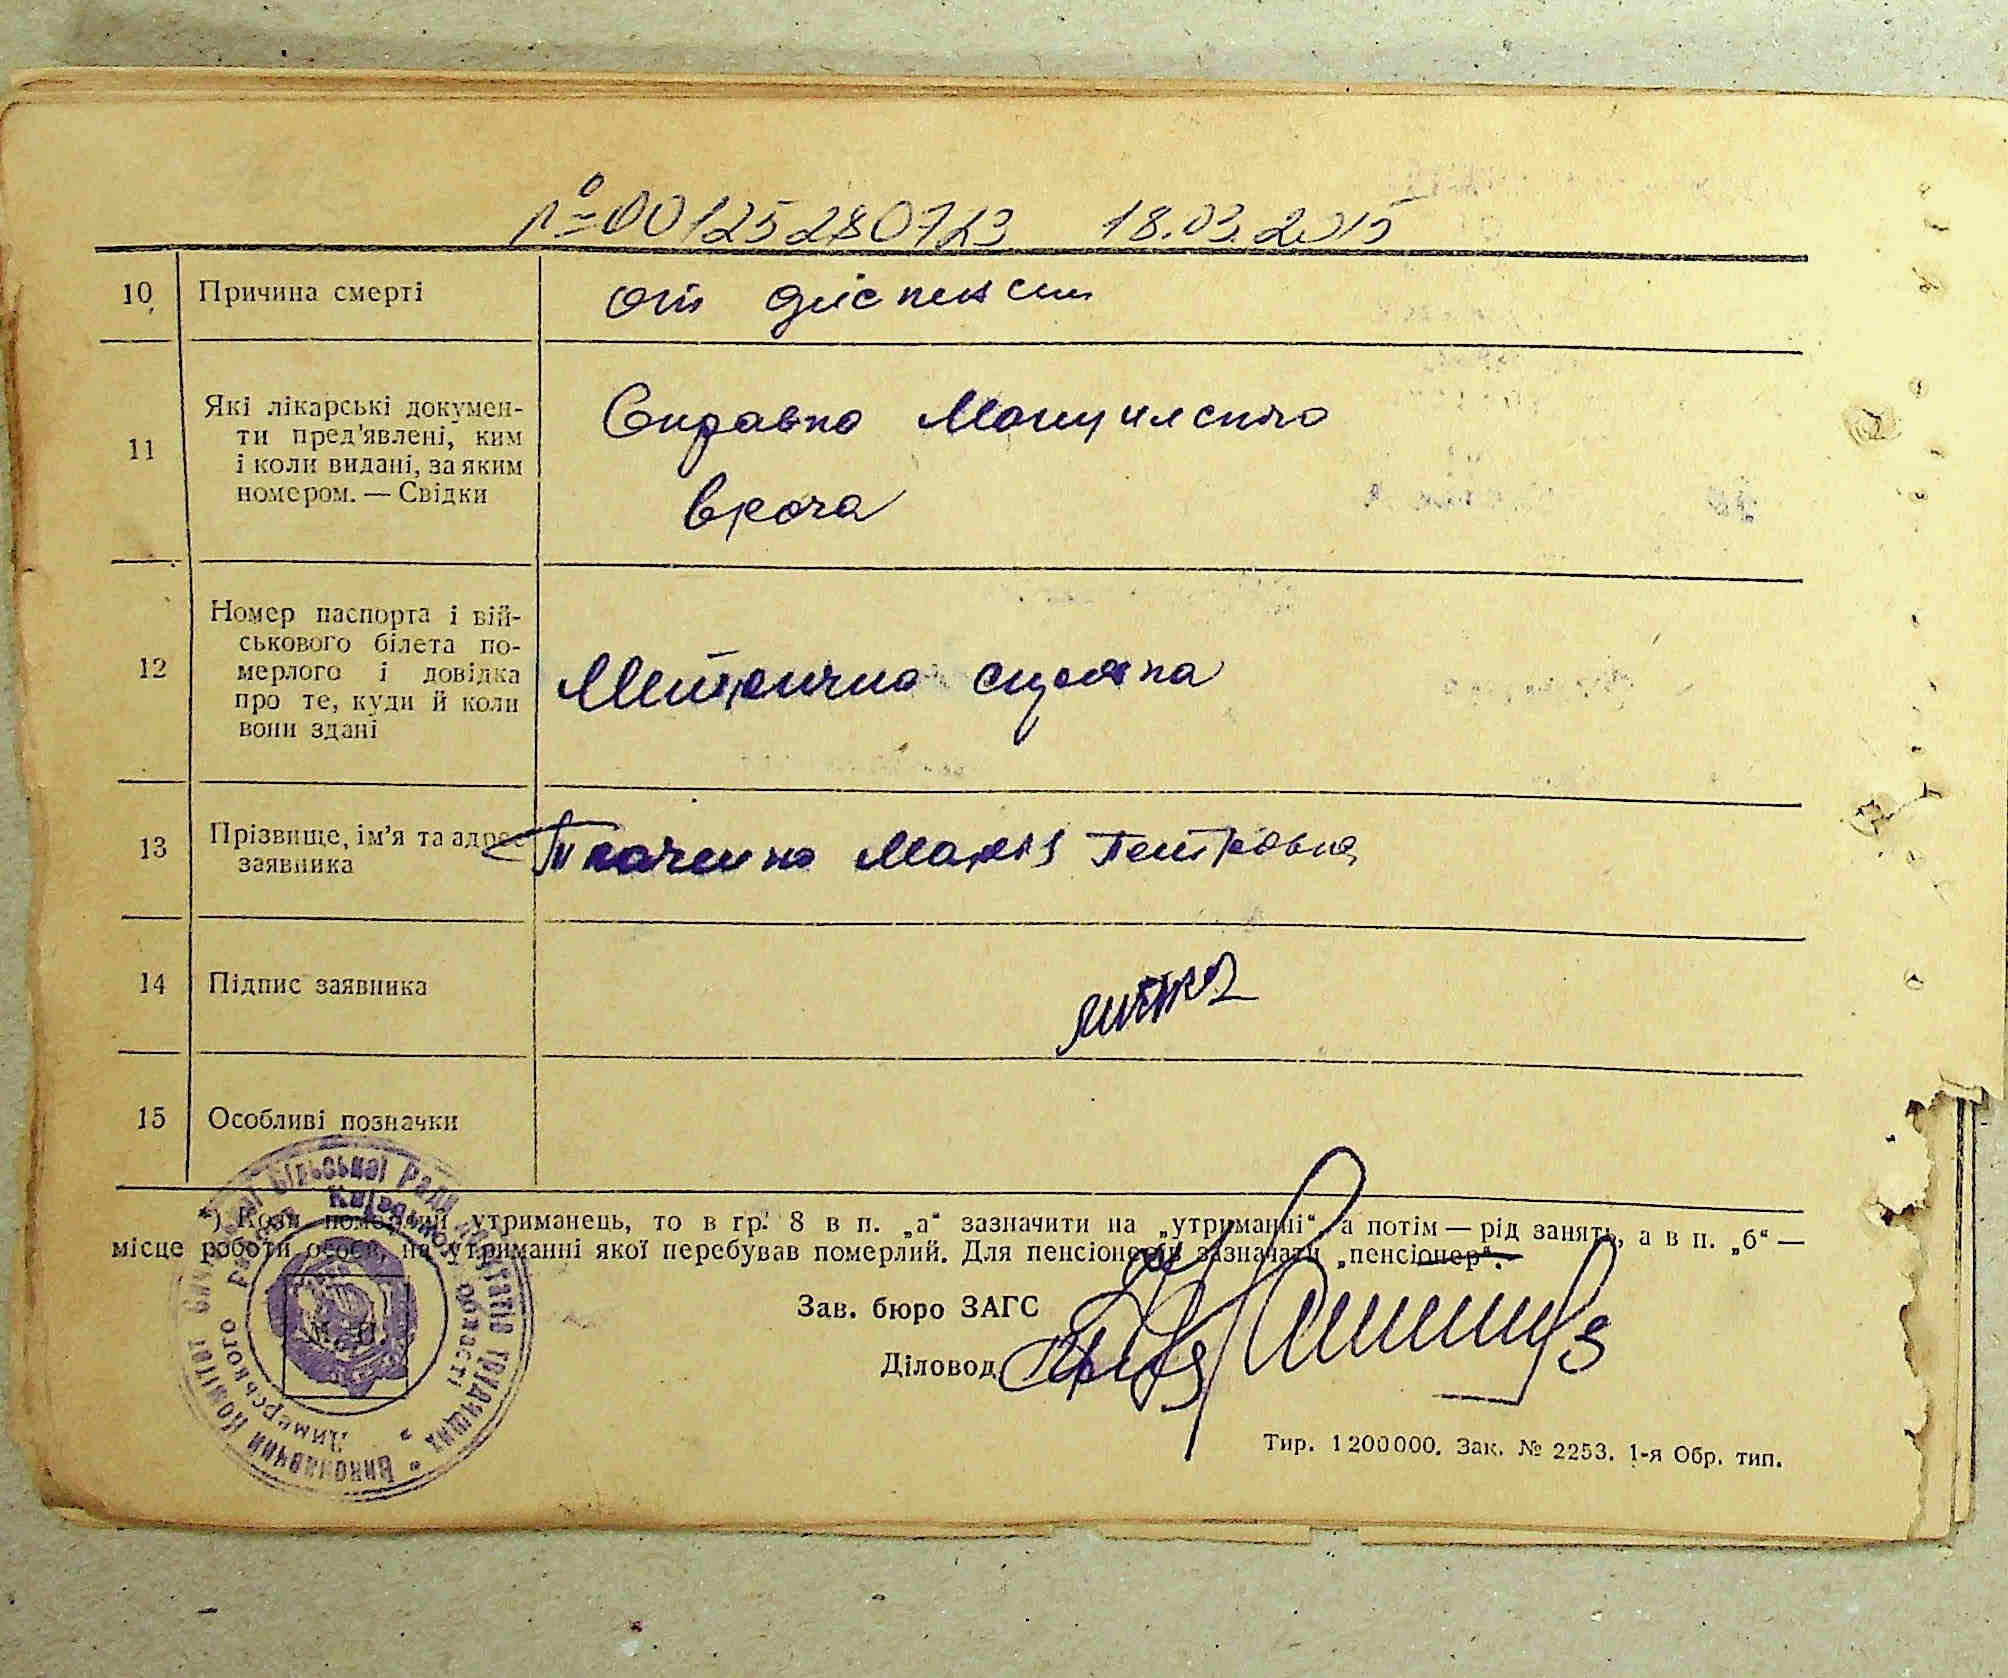 № 00125280723 18.03.2015
10 Причина смерті
от диспепсии
11 Які лікарські докумен-
ти пред'явлені, ким
і коли видані, за яким
номером. — Свідки
Справка
врача
12 Номер паспорта і вій-
ськового білета по-
мерлого і довідка
про те, куди й коли
вони здані
Метрична справка
13 Прізвище, ім'я та адрес
заявника
Ткаченко Марія Петровна
14 Підпис заявника
15 Особливі позначки
*) Коли померлий утриманець, то в гр. 8 в п. „а“ зазначити на „утриманні“, а потім — рід занять, а в п. „б“ —
місце роботи особи, на утриманні якої перебував померлий. Для пенсіонерів зазначати „пенсіонер“.
Зав. бюро ЗАГС
Діловод
М. П.
Виконавчий Комітет сільської Ради депутатів трудящих
Димерського району Київської області
Тир. 1 200 000. Зак. № 2253. 1-я Обр. тип.